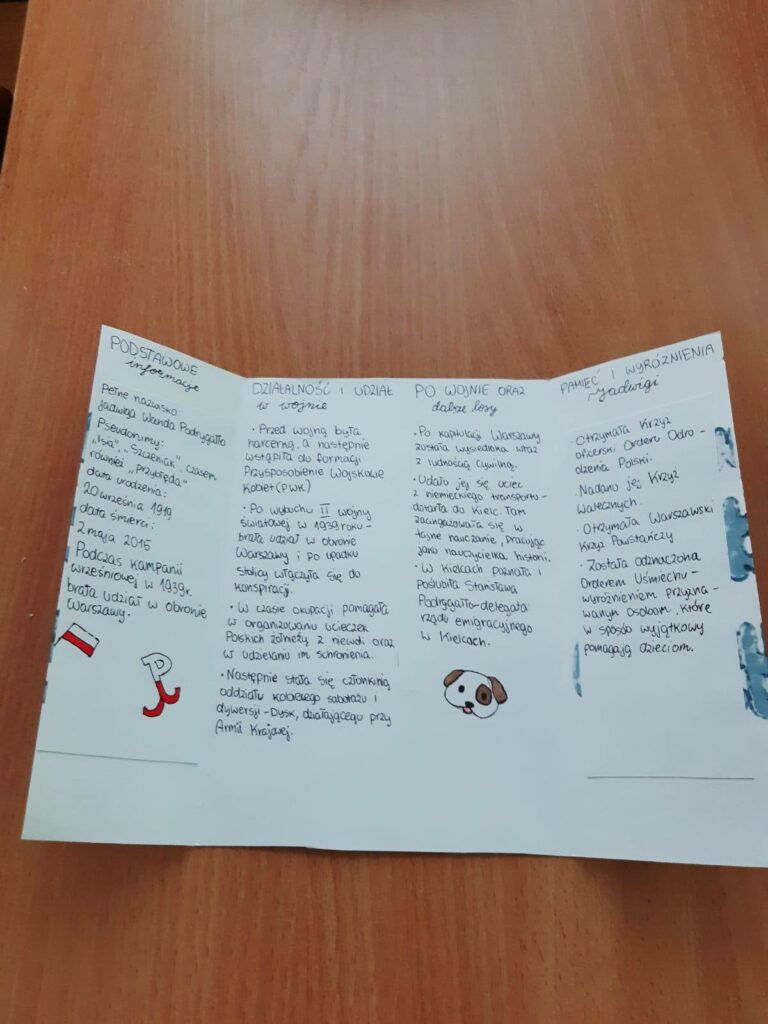 PODSTAWOWE
informacje
Pełne nazwisko:
Jadwiga Wanda Podrygałło
Pseudonimy:
„Isa”, „Szczeniak”, czasem
również „Przybłęda”
data urodzenia:
20 września 1919
data śmierci:
2 maja 2015
Podczas kampanii
wrześniowej w 1939r.
brała udział w obronie
Warszawy.
DZIAŁALNOŚĆ I UDZIAŁ
w wojnie
• Przed wojną była
harcerką, a następnie
wstąpiła do formacji
Przysposobienie Wojskowe
Kobiet (PWK)
• Po wybuchu II wojny
światowej w 1939 roku -
brała udział w obronie
Warszawy i po upadku
stolicy włączyła się do
konspiracji.
• W czasie okupacji pomagała
w organizowaniu ucieczek
Polskich żołnieży z niewoli oraz
w udzielaniu im schronienia.
• Następnie stała się członkinią
oddziału kobiecego sabotażu i
dywersji - Dysk, działającego przy
Armii Krajowej.
PO WOJNIE ORAZ
dalsze losy
• Po kapitulacji Warszawy
została wysiedlona wraz
z ludnością cywilną.
• Udało jej się uciec
z niemieckiego transportu -
dotarła do Kielc. Tam
zaangażowała się w
tajne nauczanie, pracując
jako nauczycielka historii.
• W Kielcach poznała i
poślubiła Stanisława
Podrygałło - delegata
rządu emigracyjnego
w Kielcach.
PAMIĘĆ I WYRÓŻNIENIA
~Jadwigi
• Otrzymała Krzyż
oficerski Orderu Odro-
dzenia Polski.
• Nadano jej Krzyż
Walecznych.
• Otrzymała Warszawski
Krzyż Powstańczy
• Została odznaczona
Orderem Uśmiechu -
wyróżnieniem przyzna-
wanym osobom, które
w sposób wyjątkowy
pomagają dzieciom.